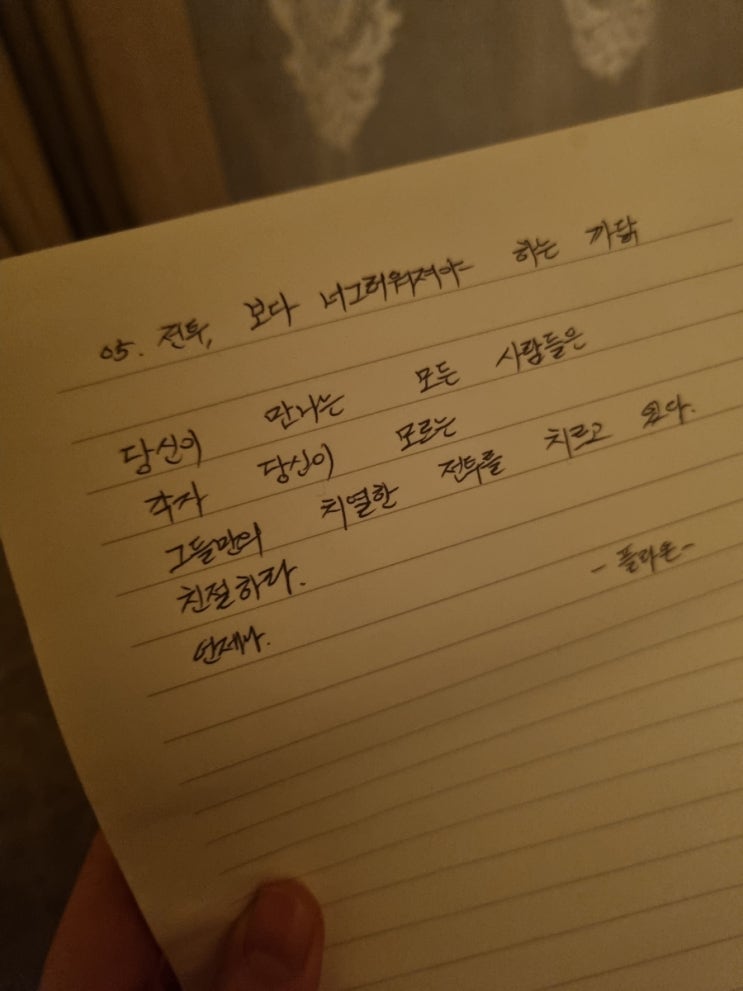 05. 전투, 보다 너그러워져야 하는 까닭
당신이 만나는 모든 사람들은
각자 당신이 모르는
그들만의 치열한 전투를 치르고 있다.
친절하라.
언제나.
- 플라온 -